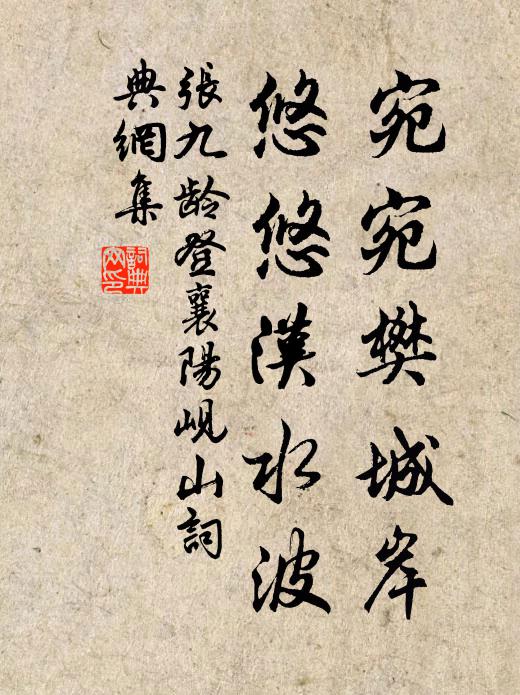 宛宛樊城岸
悠悠漢水波
張九齡登襄陽峴山詞
典網集
詞典